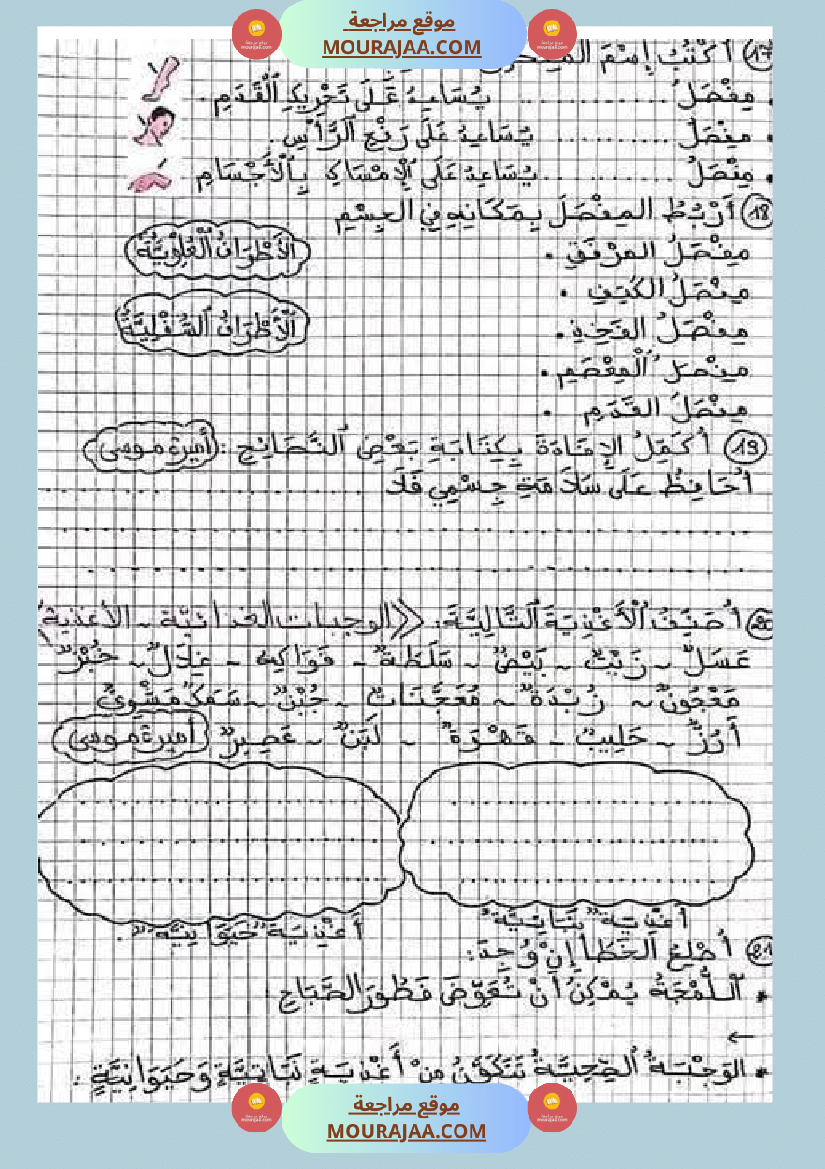 موقع مراجعة
MOURAJAA.COM
17 أَكْتُبُ إِسْمَ
مِفْصَلُ .............. يُسَاعِدُ عَلَى تَحْرِيكِ ٱلْقَدَمِ.
مِفْصَلُ .............. يُسَاعِدُ عَلَى رَفْعِ ٱلرَّأْسِ.
مِفْصَلُ .............. يُسَاعِدُ عَلَى ٱلْإِمْسَاكِ بِٱلْأَجْسَامِ
18 أَرْبِطُ المِفْصَلَ بِمَكَانِهِ فِي الجِسْمِ
مِفْصَلُ المِرْفَقِ •
ٱلْأَطْرَافُ ٱلْعُلْوِيَّةُ
مِفْصَلُ الكَتِفِ •
مِفْصَلُ الفَخِذِ •
ٱلْأَطْرَافُ ٱلسُّفْلِيَّةُ
مِفْصَلُ ٱلْمِعْصَمِ •
مِفْصَلُ القَدَمِ •
19 أُكَمِّلُ الإِفَادَةَ بِكِتَابَةِ بَعْضِ ٱلنَّصَائِحِ : أميرة موسى
أُحَافِظُ عَلَى سَلَامَةِ جِسْمِي فَلَا ..............
20 أُصَنِّفُ ٱلْأَغْذِيَةَ ٱلتَّالِيَةَ: الوجبات الغذائيّة - الأغذية
عَسَلٌ - زَيْتٌ - بَيْضٌ - سَلَطَةٌ - فَوَاكِهُ - غِلَالٌ - خُبْزٌ
مَعْجُونٌ - زُبْدَةٌ - مُعَجَّنَاتٌ - جُبْنٌ - سَمَكٌ مَشْوِيٌّ
أَرُزٌّ - حَلِيبٌ - قَهْوَةٌ - لَبَنٌ - عَصِيرٌ أميرة موسى
أَغْذِيَةٌ نَبَاتِيَّةٌ
أَغْذِيَةٌ حَيَوَانِيَّةٌ.
21 أُصْلِحُ الخَطَأَ إِنْ وُجِدَ:
• ٱللُّمْجَةُ يُمْكِنُ أَنْ تُعَوِّضَ فَطُورَ الصَّبَاحِ
←
• الوَجْبَةُ ٱلصِّحِّيَّةُ تَتَكَوَّنُ مِنْ أَغْذِيَةٍ نَبَاتِيَّةٍ وَحَيَوَانِيَّةٍ.
موقع مراجعة
MOURAJAA.COM